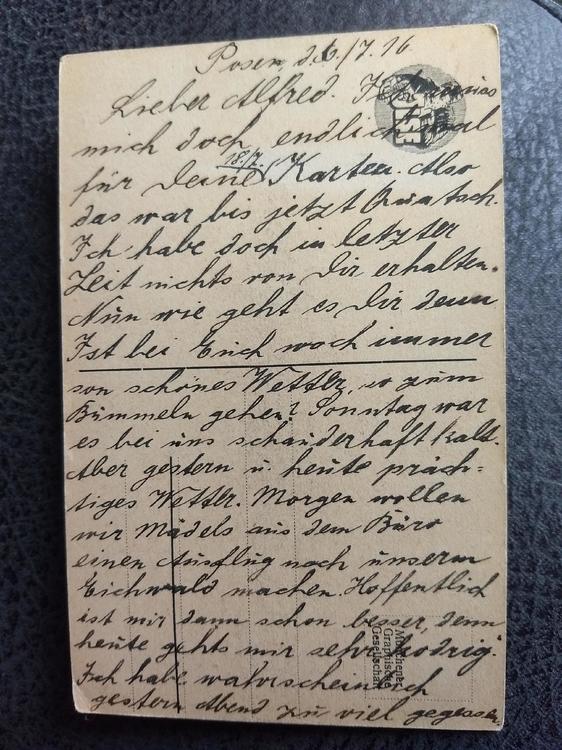 Posen, d. 6./7. 16
Lieber Alfred. Ich
mich doch endlich mal
für Deine Karten. Also
18./7.
das war bis jetzt Quatsch.
Ich habe doch in letzter
Zeit nichts von Dir erhalten.
Nun wie geht es Dir denn
Ist bei Euch noch immer
son schönes Wetter, so zum
Bummeln gehen? Sonntag war
es bei uns schauderhaft kalt.
Aber gestern u. heute präch=
tiges Wetter. Morgen wollen
wir Mädels aus dem Büro
einen Ausflug nach unserm
Eichwald machen. Hoffentlich
ist mir dann schon besser, denn
heute gehts mir sehr kodrig.
Ich habe wahrscheinlich
gestern Abend zu viel gegessen.
Münchener
Graphische
Gesellschaft